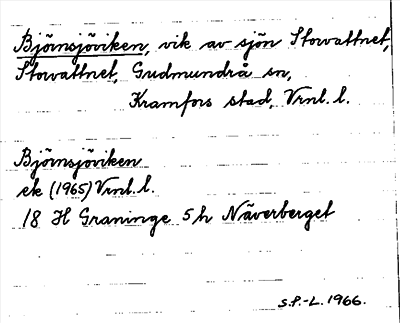 Björnsjöviken, vik av sjön Storvattnet,
Storvattnet, Gudmundrå sn,
Kramfors stad, Vrnl. l.
Björnsjöviken
ek (1965) Vrnl. l.
18 H Graninge 5 h Näverberget
S.P.-L. 1966.